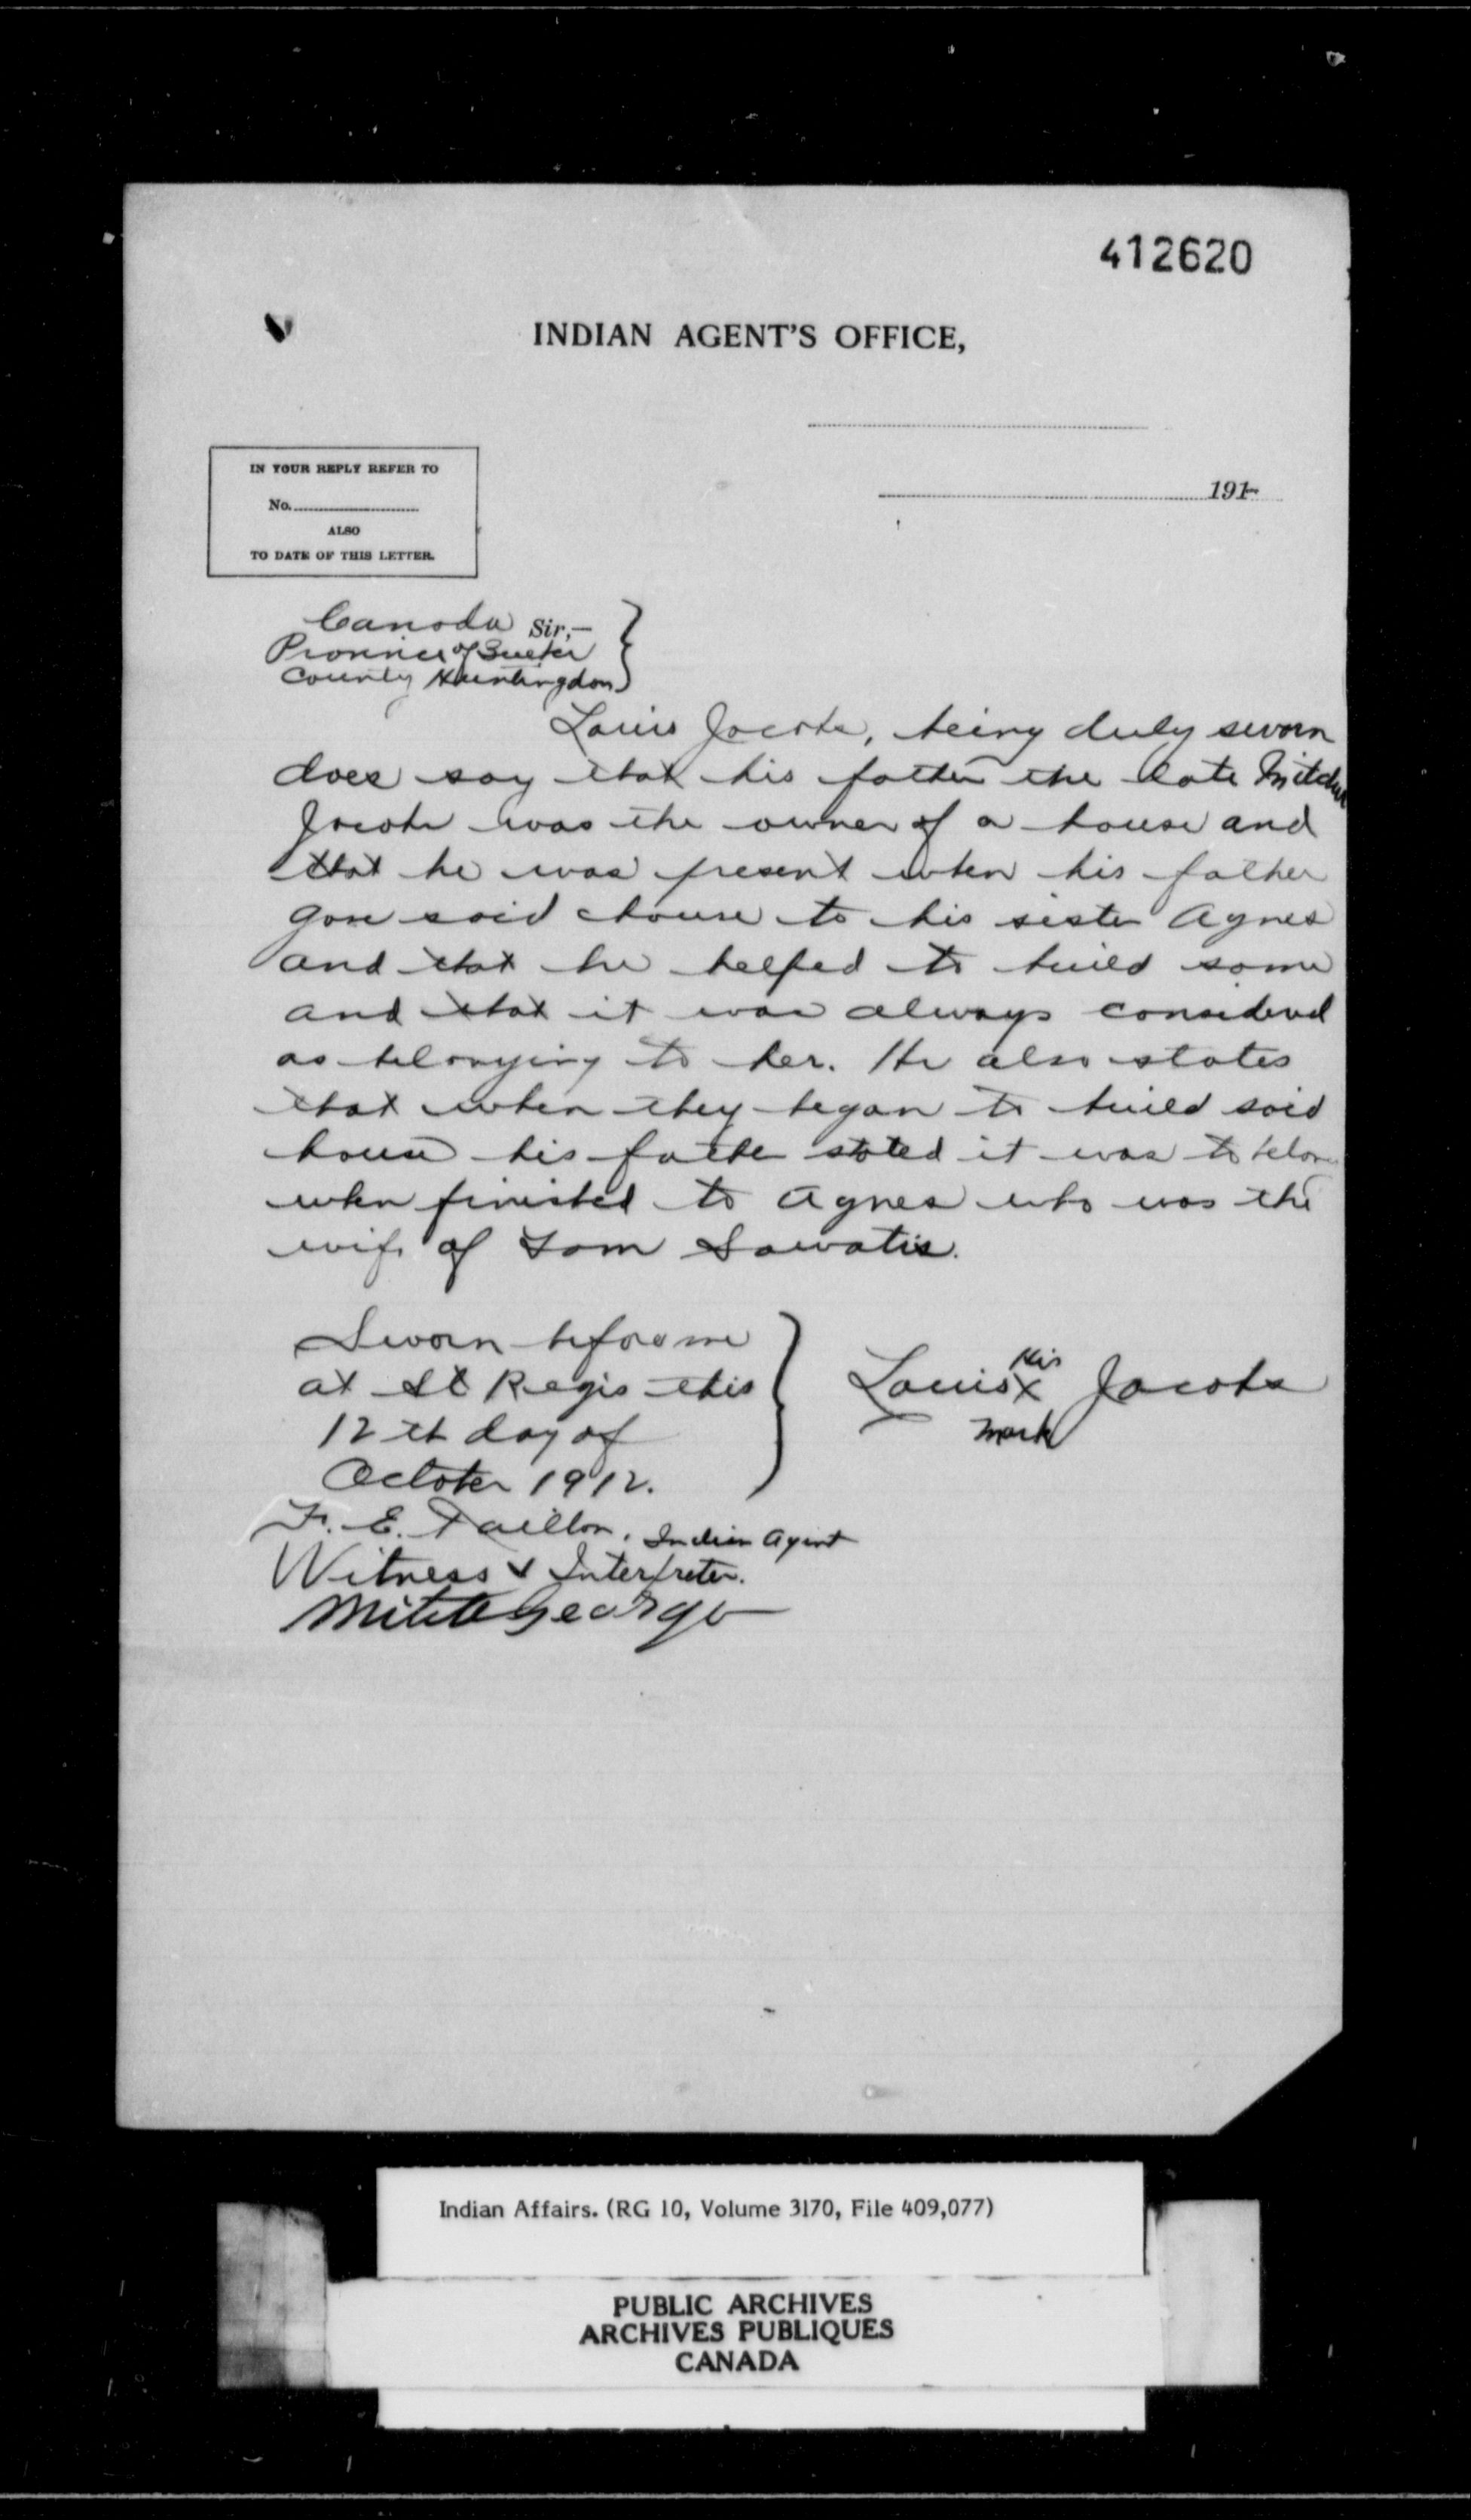 412620
INDIAN AGENT'S OFFICE,
191-
IN YOUR REPLY REFER TO
No.
ALSO
TO DATE OF THIS LETTER.
Canada Sir,—
Province of Quebec
County Huntingdon
Louis Jacobs, being duly sworn
does say that his father the late Mitchel
Jacobs was the owner of a house and
that he was present when his father
gave said house to his sister Agnes
and that he helped to build same
and that it was always considered
as belonging to her. He also states
that when they began to build said
house his father stated it was to belong
when finished to Agnes who was the
wife of Tom Sawatis.
Sworn before me
at St Regis this
12th day of
October 1912.
His
Louis X Jacobs
mark
F. E. Taillon, Indian Agent
Witness & Interpreter.
Mitch George
Indian Affairs. (RG 10, Volume 3170, File 409,077)
PUBLIC ARCHIVES
ARCHIVES PUBLIQUES
CANADA